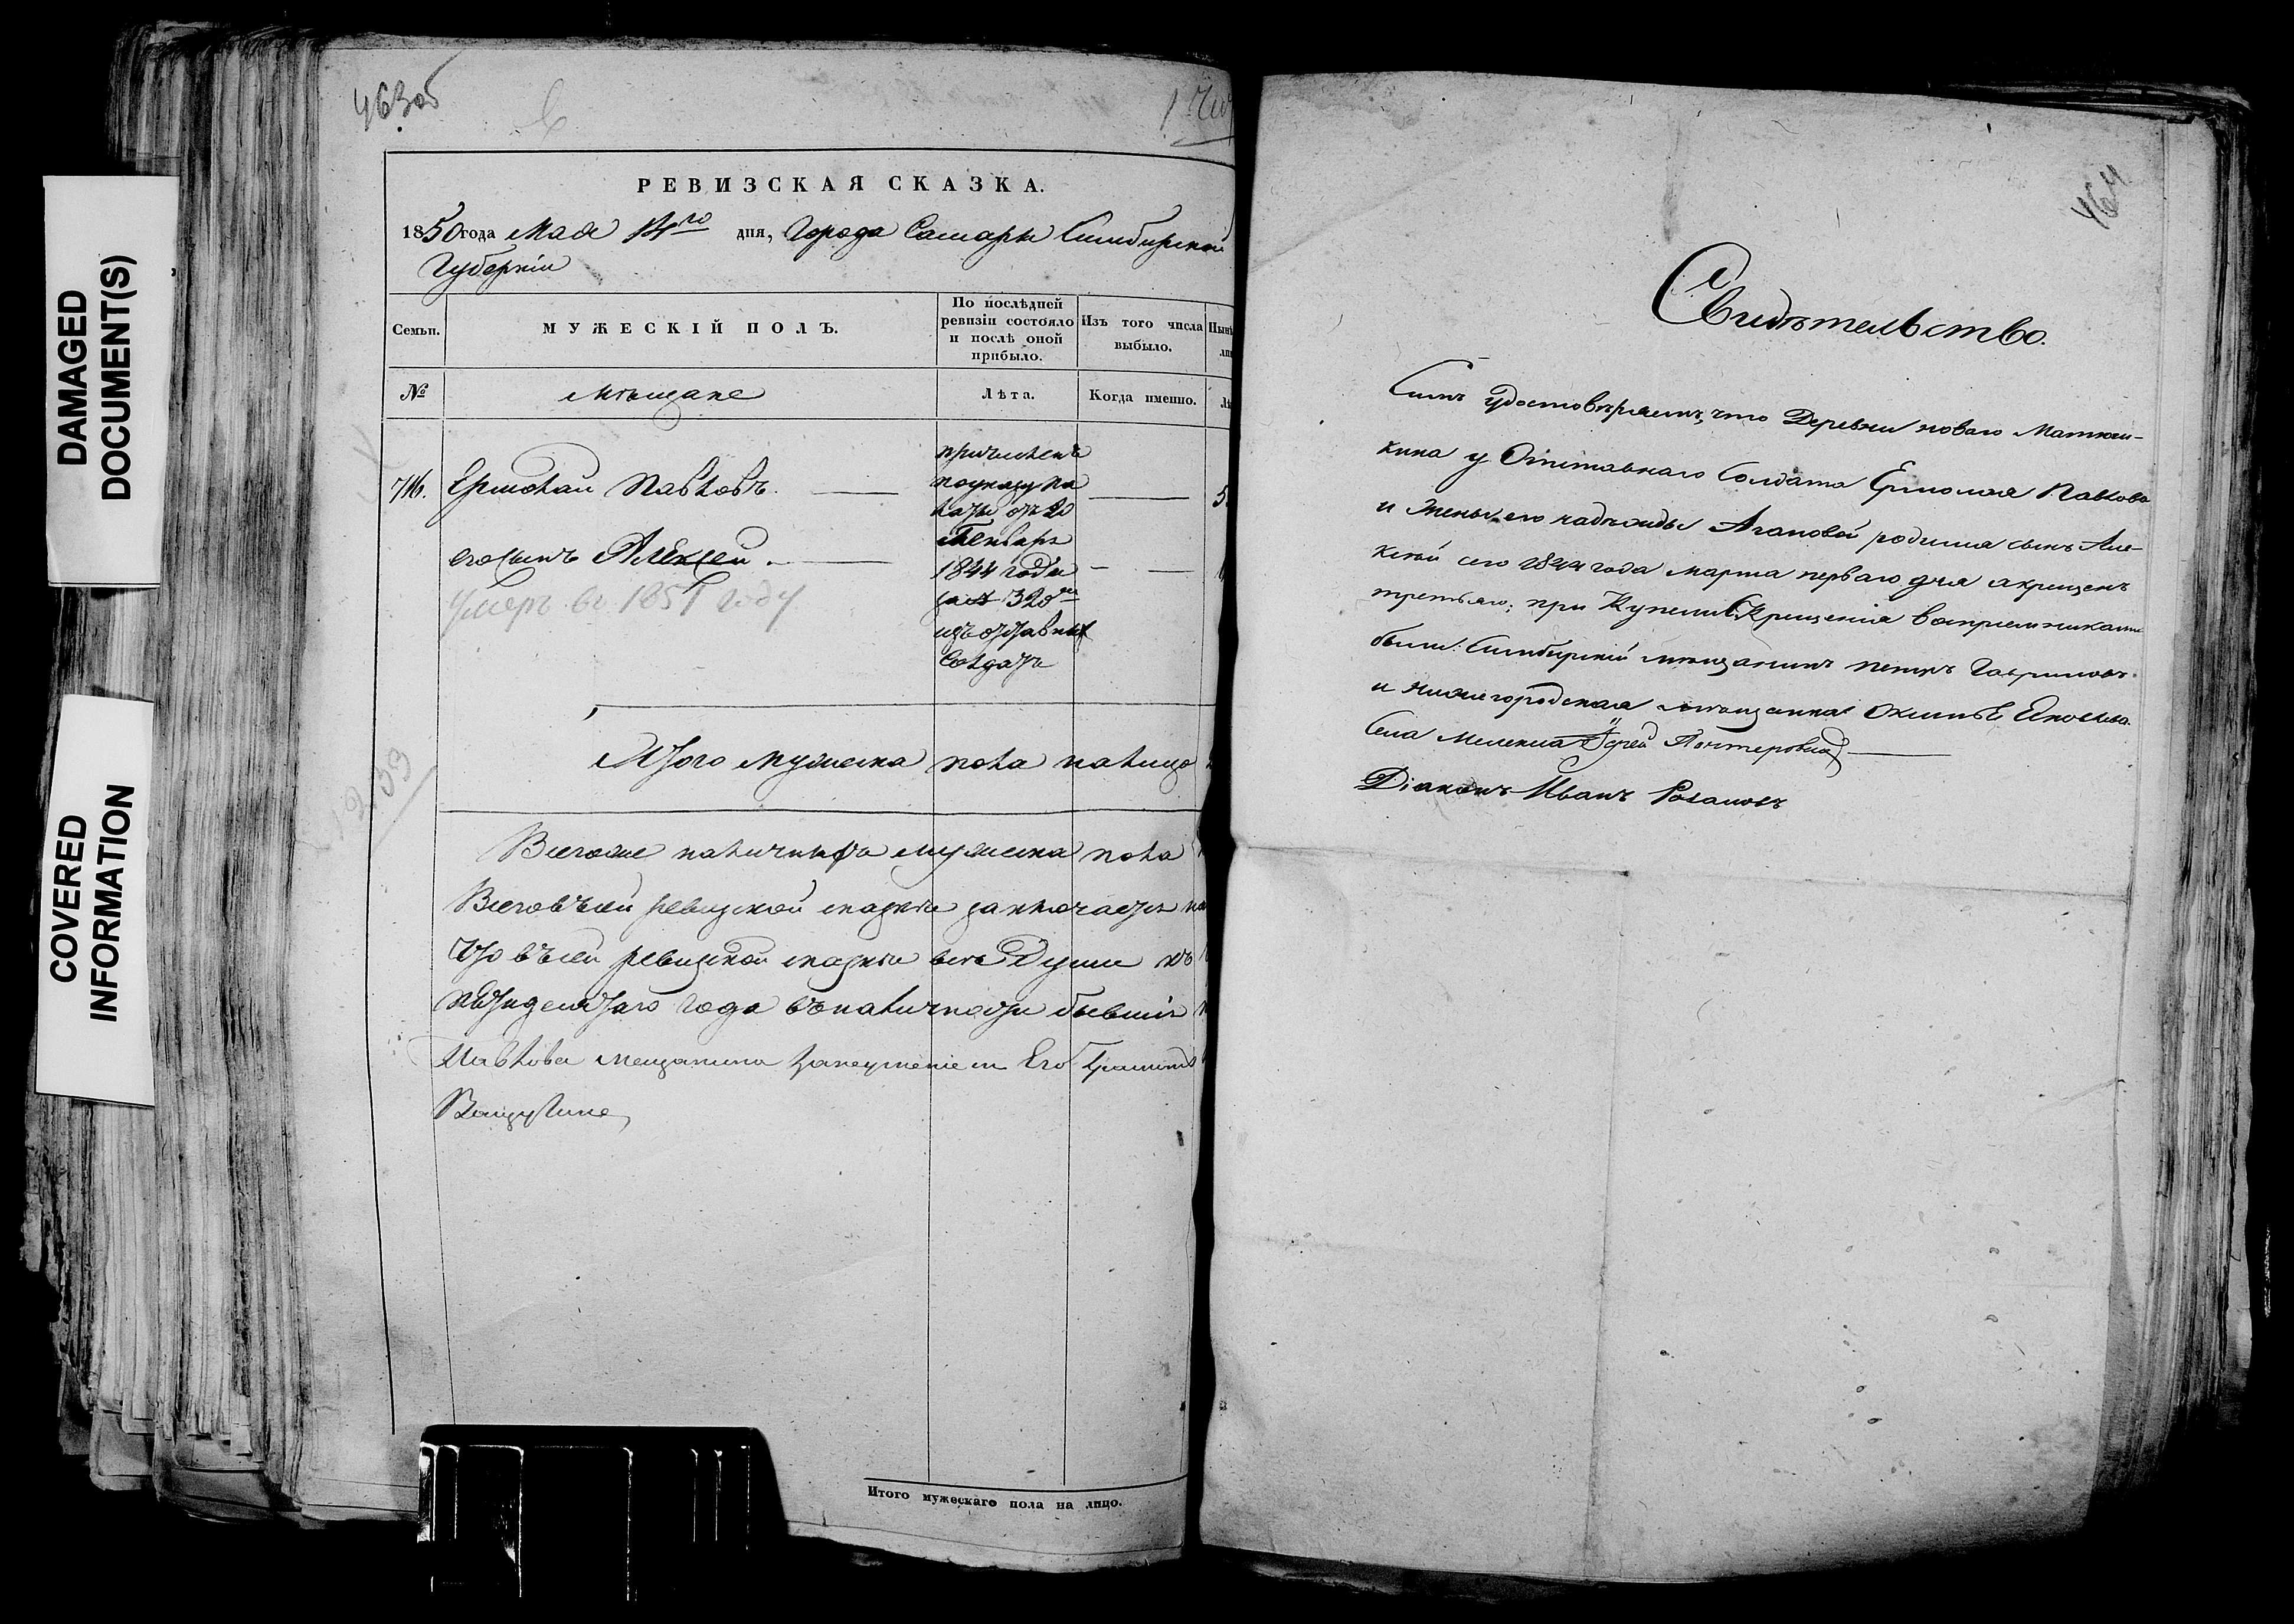 DAMAGED
DOCUMENT(S)
COVERED
INFORMATION
463об
РЕВИЗСКАЯ СКАЗКА.
1850 года Мая 14го дня, Города Самары Симбирской
Губернии
Семьи.
МУЖЕСКІЙ ПОЛЪ.
По послѣдней
ревизіи состояло
и послѣ оной
прибыло.
Изъ того числа
выбыло.
№
мѣщане
Лѣта.
Когда именно.
716.
Ермолай Павловъ.
его сынъ Алексей
Умеръ въ 1851 году
причисленъ
по указу па
латы отъ 20
Генваря
1844 года
за № 320м
изъ отставныхъ
Солдатъ
Итого мужеска пола налицо
Всего же наличныхъ мужеска пола
Всего въ сей ревизской сказке заключается
Что въ сей ревизской сказке все Души къ
пятидесятаго года въ наличности бывшие
Павлова мещанина
Итого мужескаго пола на лицо.
464
Свидѣтельство.
Симъ удостовѣряемъ, что Деревни новаго Матюш-
кина у Отставнаго Солдата Ермолая Павлова
и Жены его надежды Агаповой родился сынъ Але-
ксѣй сего 1844 года марта перваго дня а крещенъ
третьяго; при Купели Крещенія воспріемниками
были: Симбирскій мѣщанинъ петръ Гавриловъ
и нижегородская мѣщанка
Села Іерей
Діаконъ Иванъ